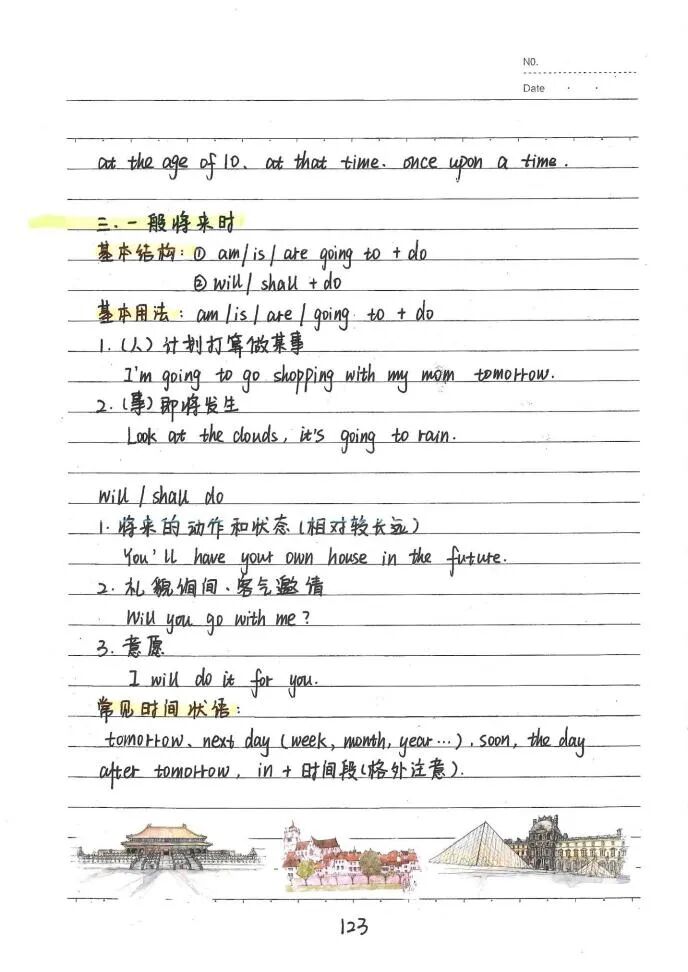 NO.
Date
at the age of 10、at that time、once upon a time.
三、一般将来时
基本结构：① am/is/are going to + do
② will/shall + do
基本用法：am/is/are/going to + do
1.（人）计划打算做某事
I'm going to go shopping with my mom tomorrow.
2.（事）即将发生
Look at the clouds, it's going to rain.
will/shall do
1. 将来的动作和状态（相对较长远）
You'll have your own house in the future.
2. 礼貌询问、客气邀请
Will you go with me?
3. 意愿
I will do it for you.
常见时间状语：
tomorrow、next day (week, month, year…), soon, the day
after tomorrow, in + 时间段（格外注意）.
123